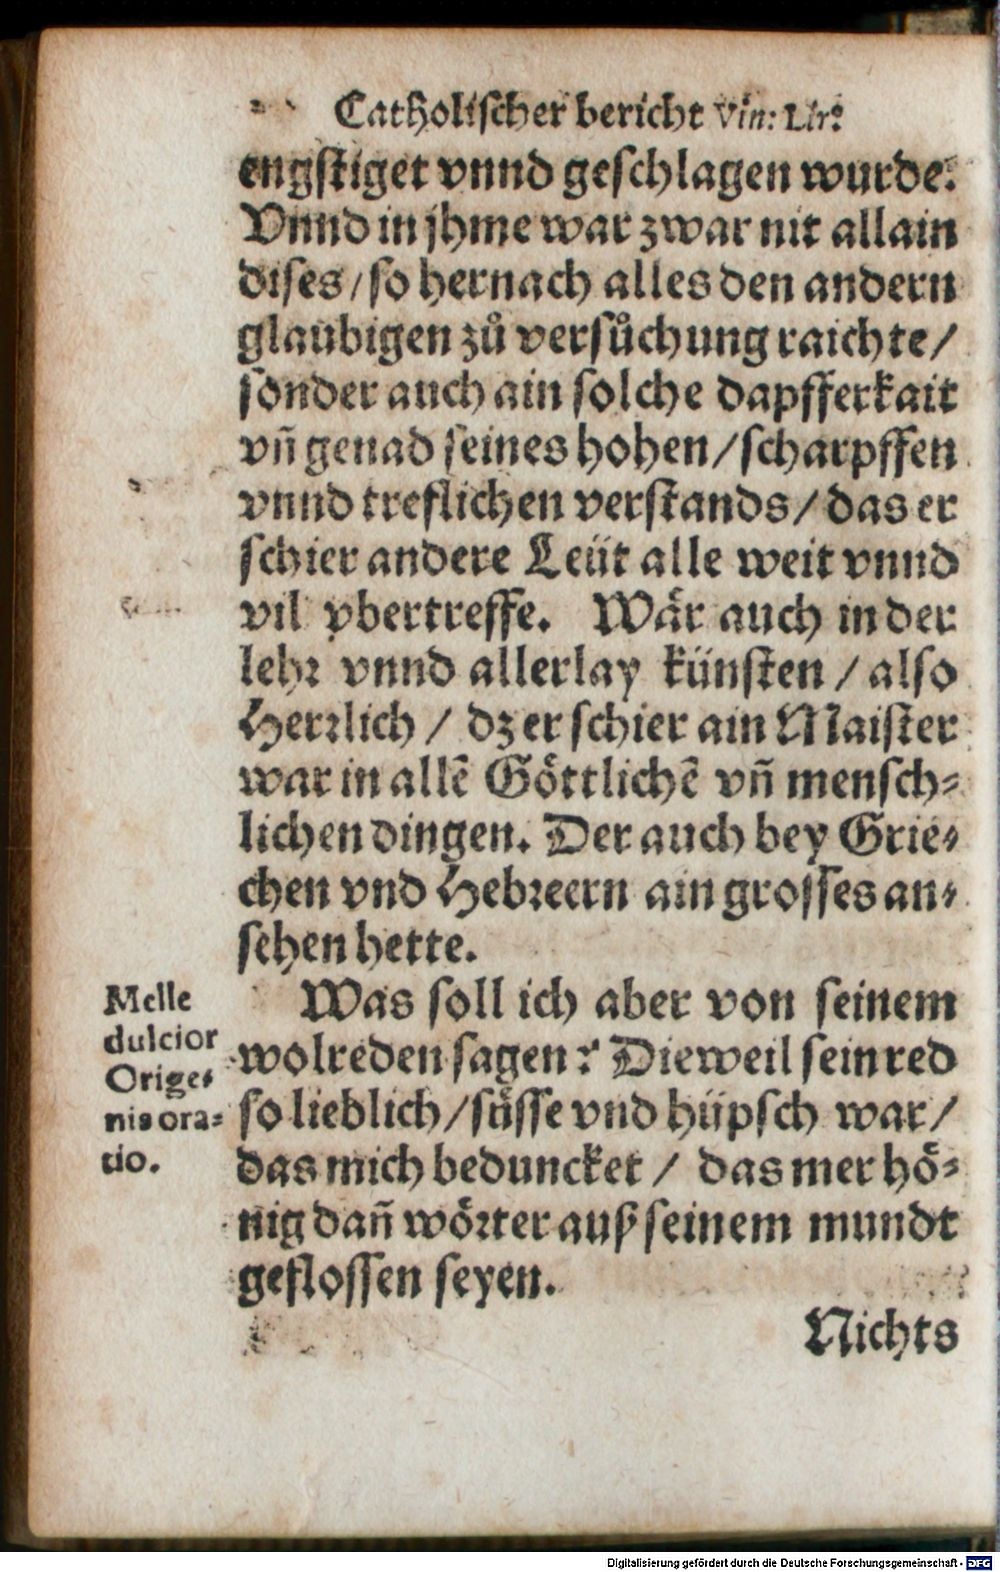 Catholischer bericht Vin: Lir:
engstiget vnnd geschlagen wurde.
Vnnd in jhme war zwar nit allain
dises / so hernach alles den andern
glaubigen zů versůchung raichte /
sonder auch ain solche dapfferkait
vñ genad seines hohen / scharpffen
vnnd treflichen verstands / das er
schier andere Leüt alle weit vnnd
vil vbertreffe. Wär auch in der
lehr vnnd allerlay künsten / also
Herrlich / dz er schier ain Maister
war in allẽ Göttlichẽ vñ mensch-
lichen dingen. Der auch bey Grie-
chen vnd Hebreern ain grosses an-
sehen hette.
Was soll ich aber von seinem
wolreden sagen? Dieweil sein red
so lieblich / süsse vnd hüpsch war /
das mich beduncket / das mer hö-
nig dañ wörter auß seinem mundt
geflossen seyen.
Melle
dulcior
Orige-
nis ora-
tio.
Nichts
Digitalisierung gefördert durch die Deutsche Forschungsgemeinschaft - DFG